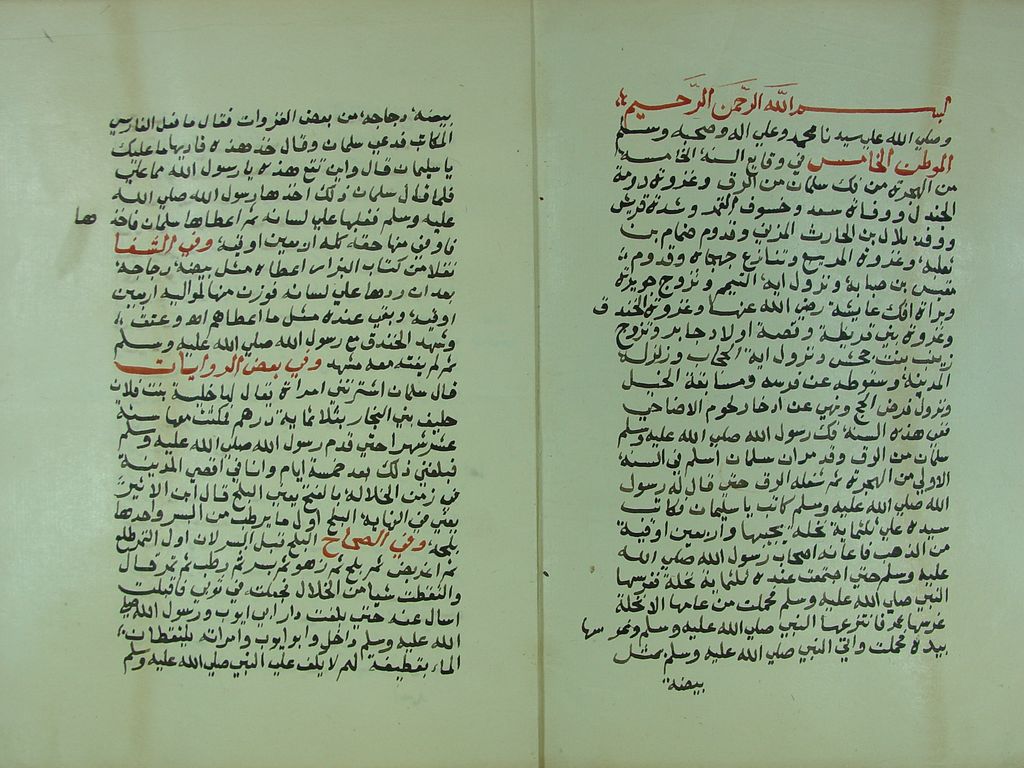 بسم الله الرحمن الرحيم
وصلي الله علي سيدنا محمد وعلي اله وصحبه وسلم
الموطن الخامس في وقايع السنة الخامسة
من الهجرة من فك سلمان من الرق وغزوة دومة
الجندل ووفاة سعد وخسوف القمر وشدة قريش
ووفد بلال بن الحارث المزني وقدوم ضمام بن
ثعلبة وغزوة المريسع وتنازع جهجاه وقدوم
مقيس بن صبابة ونزول اية التيمم وتزوج جويرية
وبراة افك عايشة رضي الله عنها وغزوة الخندق
وغزوة بني قريظة وقصة اولاد جابر وتزوج
زينب بنت جحش ونزول اية الحجاب وزلزلة
المدينة وسقوطه عن فرسه ومسابقة الخيل
ونزول فرض الحج ونهي عن ادخار لحوم الاضاحي
ففي هذه السنة فك رسول الله صلي الله عليه وسلم
سلمان من الرق وقد مر ان سلمان اسلم في السنة
الاولي من الهجرة ثم شغله الرق حتي قال له رسول
الله صلي الله عليه وسلم كاتب يا سليمان فكاتب
سيده علي ثلثماية نخلة يحييها واربعين اوقية
من الذهب فاعانه اصحاب رسول الله صلي الله
عليه وسلم حتي اجتمعت عنده ثلثماية نخلة فغرسها
النبي صلي الله عليه وسلم فحملت من عامها الا نخلة
غرسها عمر فانتزعها النبي صلي الله عليه وسلم وغرسها
بيده فحملت واتي النبي صلي الله عليه وسلم بمثل
بيضة
بيضة دجاجة من بعض الغزوات فقال ما فعل الفارسي
المكاتب فدعي سلمان وقال خذ هذه فاديها ما عليك
يا سليمان قال واين تقع هذه يا رسول الله مما علي
فلما قال سلمان ذلك اخذها رسول الله صلي الله
عليه وسلم فقلبها علي لسانه ثم اعطاها سلمان فاخذها
فاوفي منها حقه كله اربعين اوقية وفي الشفا
نقلا من كتاب البزار اعطاه مثل بيضة دجاجة
بعد ان ردها علي لسانه فوزن منها لمواليه اربعين
اوقية وبقي عنده مثل ما اعطاهم اه وعتق
وشهد الخندق مع رسول الله صلي الله عليه وسلم
ثم لم يفته معه مشهد وفي بعض الروايات
قال سلمان اشترتني امراة يقال لها حلية بنت فلان
حليف بني النجار بثلثماية درهم فمكثت معها ستة
عشر شهرا حتي قدم رسول الله صلي الله عليه وسلم
فبلغني ذلك بعد خمسة ايام وانا في اقصي المدينة
في زمن الخلالة بالفتح يعني البلح قال ابن الاثير
يعني في النهاية البلح اول ما يرطب من البسر واحدها
بلحة وفي الصحاح البلح قبل البسر لان اول التمر طلع
ثم اغريض ثم بلح ثم زهو ثم بسر ثم رطب ثم تمر قال
والتقطت شيا من الخلال فجعلته في ثوبي فاقبلت
اسال عنه حتي بلغت دار ابي ايوب ورسول الله صلي
الله عليه وسلم داخل وابو ايوب وامراته يلتقطان
الماء بقطيفة لهم لا يكف علي النبي صلي الله عليه وسلم